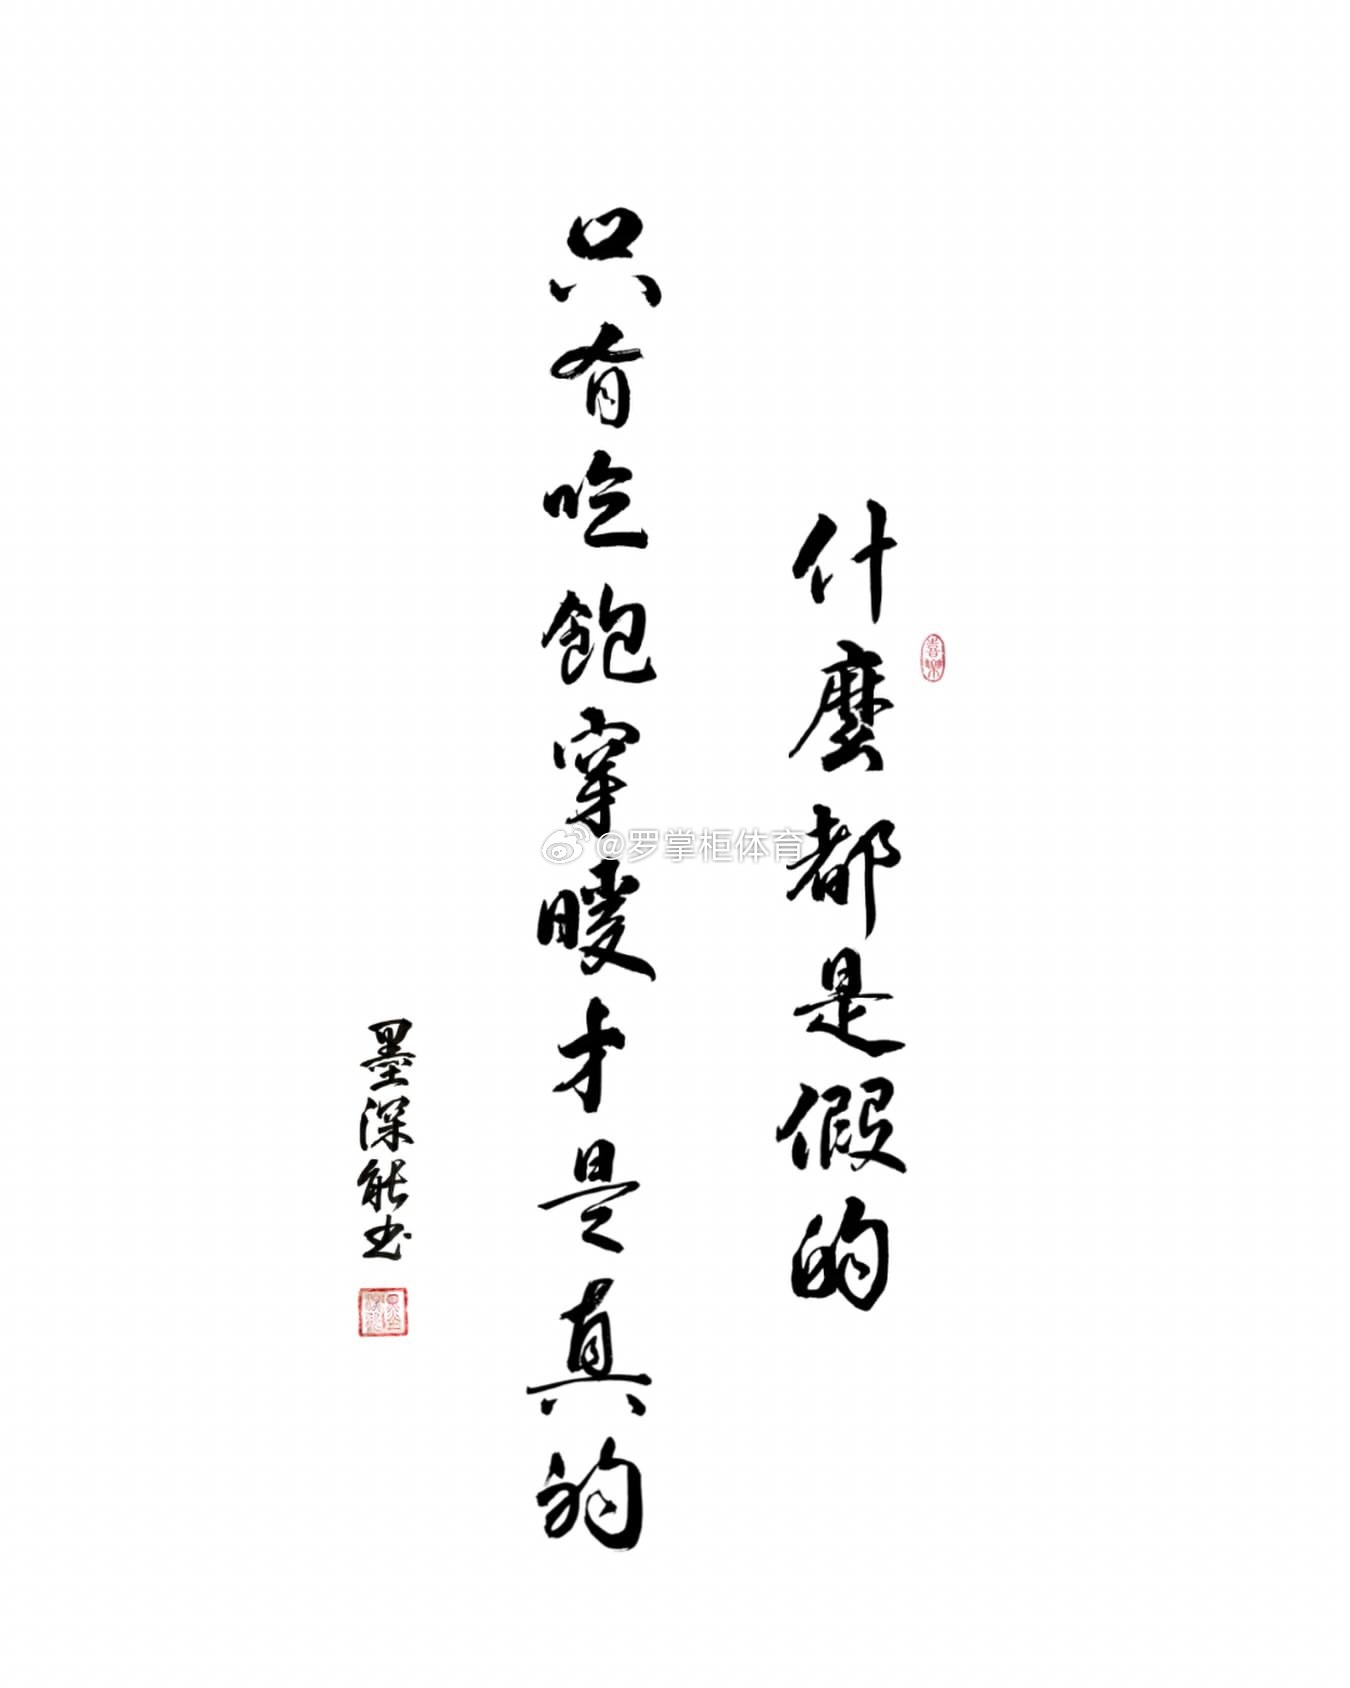 什麼都是假的
只有吃飽穿暖才是真的
墨深能书
喜樂
@罗掌柜体育